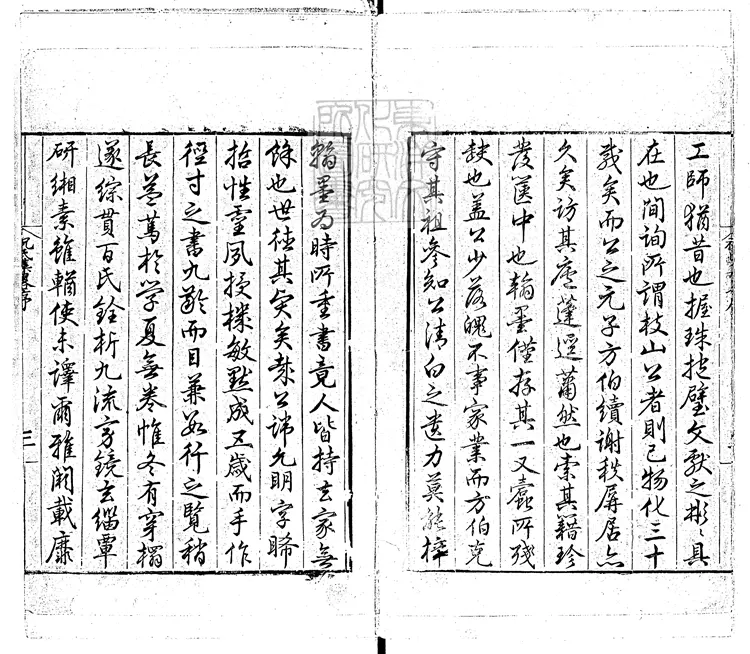 工師猶昔也握珠抱璧文獻之彬〻具
在也間詢所謂枝山公者則已物化三十
歲矣而公之元子方伯續謝秩屏居亦
久矣訪其廬蓬逕蕭然也索其籍珍
發篋中也翰墨僅存其一又蠹所殘
缺也蓋公少落魄不事家業而方伯克
守其祖參知公清白之遺力莫能梓
翰墨為時所重書竟人皆持去家無
餘也世其矣公諱允明字晞
哲性靈夙授機敏默成五歲而手作
徑寸之書九齡而目兼數行之覽稍
長益篤於學夏無卷惟冬有穿榻
遂綜貫百氏銓析九流旁鏡玄緇覃
研緗素雖輶使未譯爾雅闕載靡
序
三